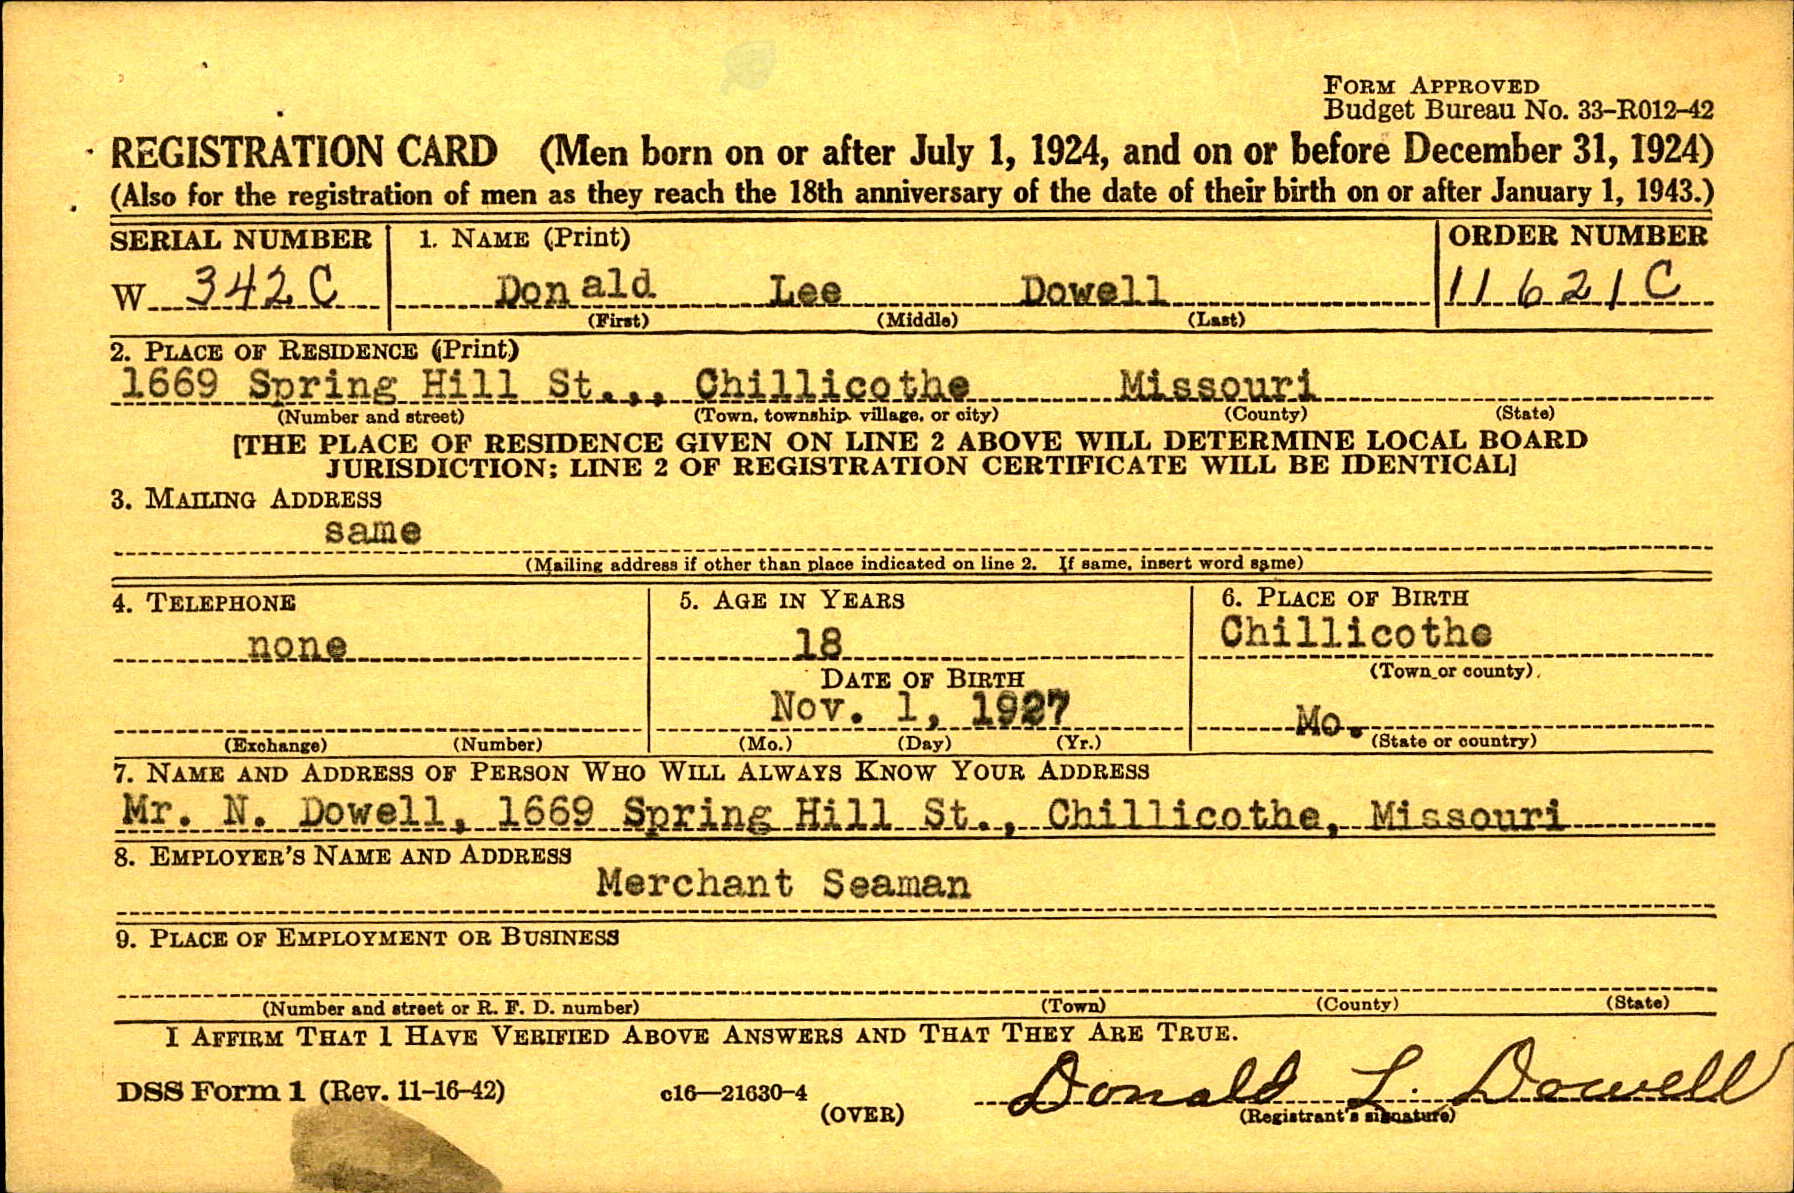 FORM APPROVED
Budget Bureau No. 33-R012-42
REGISTRATION CARD (Men born on or after July 1, 1924, and on or before December 31, 1924)
(Also for the registration of men as they reach the 18th anniversary of the date of their birth on or after January 1, 1943.)
SERIAL NUMBER 1. NAME (Print) ORDER NUMBER
W 342 C Donald Lee Dowell 11621 C
(First) (Middle) (Last)
2. PLACE OF RESIDENCE (Print)
1669 Spring Hill St.,, Chillicothe Missouri
(Number and street) (Town, township, village, or city) (County) (State)
[THE PLACE OF RESIDENCE GIVEN ON LINE 2 ABOVE WILL DETERMINE LOCAL BOARD
JURISDICTION; LINE 2 OF REGISTRATION CERTIFICATE WILL BE IDENTICAL]
3. MAILING ADDRESS
same
(Mailing address if other than place indicated on line 2. If same, insert word same)
4. TELEPHONE 5. AGE IN YEARS 6. PLACE OF BIRTH
none 18 Chillicothe
DATE OF BIRTH (Town or county)
Nov. 1, 1927 Mo.
(Exchange) (Number) (Mo.) (Day) (Yr.) (State or country)
7. NAME AND ADDRESS OF PERSON WHO WILL ALWAYS KNOW YOUR ADDRESS
Mr. N. Dowell, 1669 Spring Hill St., Chillicothe, Missouri
8. EMPLOYER'S NAME AND ADDRESS
Merchant Seaman
9. PLACE OF EMPLOYMENT OR BUSINESS
(Number and street or R. F. D. number) (Town) (County) (State)
I AFFIRM THAT I HAVE VERIFIED ABOVE ANSWERS AND THAT THEY ARE TRUE.
DSS Form 1 (Rev. 11-16-42) c16—21630-4 (OVER) Donald L. Dowell
(Registrant's signature)